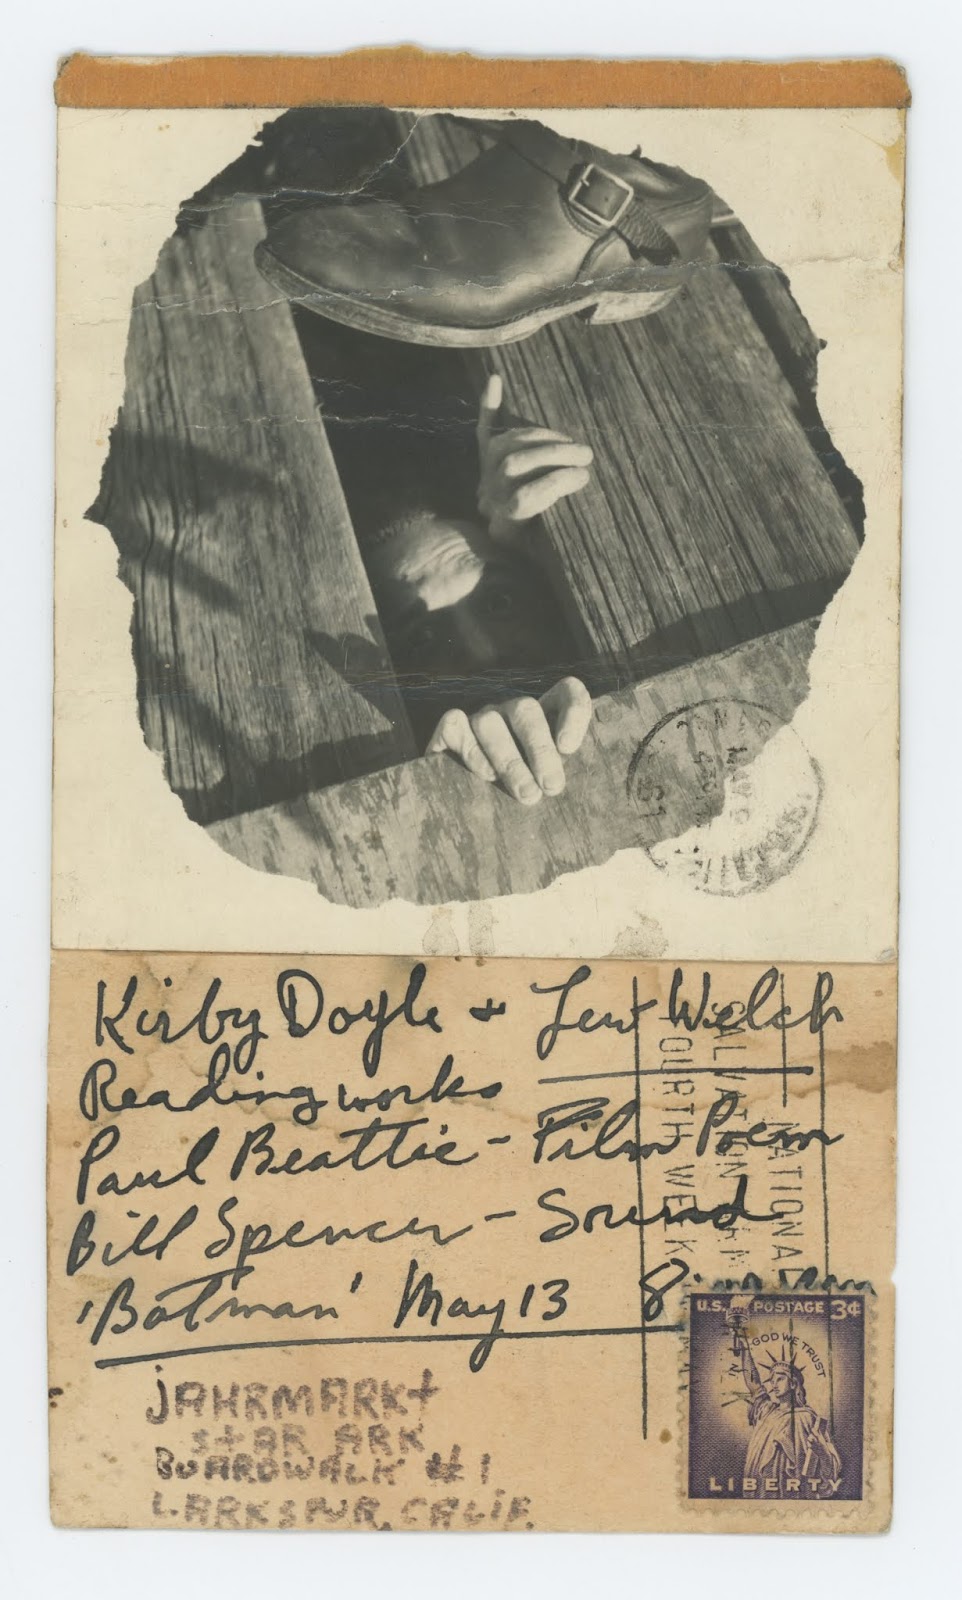 MAY
Kirby Doyle + Lew Welch
Reading works
Paul Beattie - Film Poem
Bill Spencer - Sound
'Batman' May 13 8
NATIONAL
ALVATION
OURTH WEEK
U.S. POSTAGE 3¢
GOD WE TRUST
LIBERTY
JAHRMARKt
StAR ARK
BOARDWALK #1
LARKSPUR, CALIF.